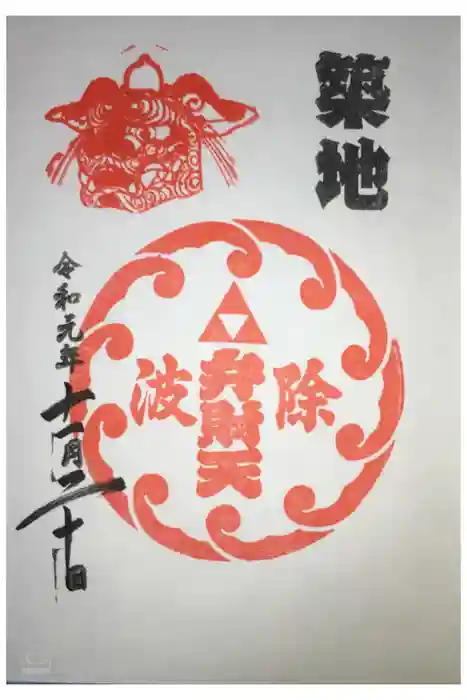 築地
除
弁財天
波
令和元年十一月二十日